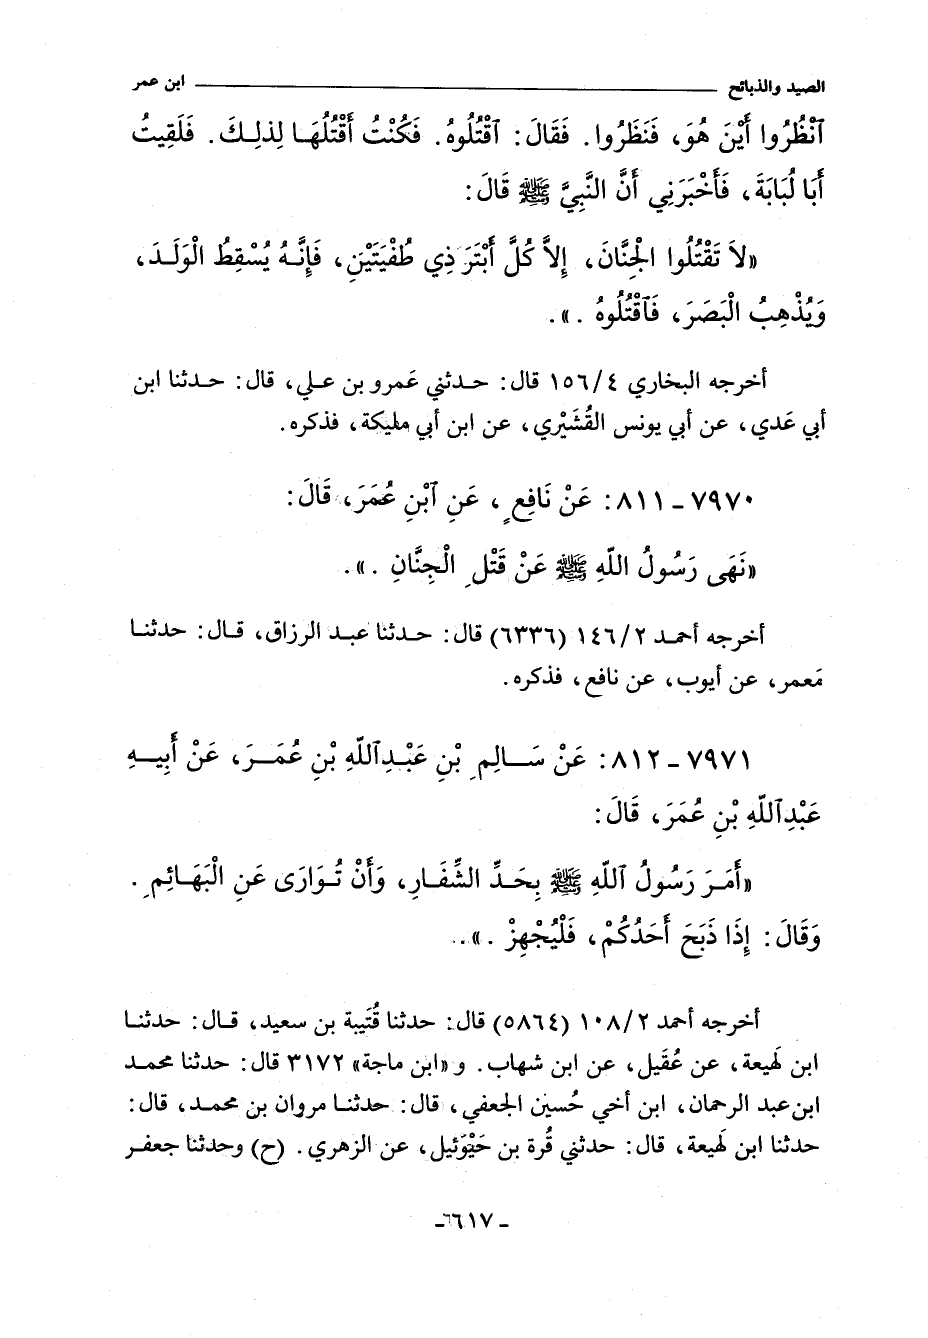 الصيد والذبائح ــــــــــــــــــــــــــــــــــــــــ ابن عمر
ٱنْظُرُوا أَيْنَ هُوَ، فَنَظَرُوا. فَقَالَ: ٱقْتُلُوهُ. فَكُنْتُ أَقْتُلُهَا لِذلِكَ. فَلَقِيتُ
أَبَا لُبَابَةَ، فَأَخْبَرَنِي أَنَّ النَّبِيَّ ﷺ قَالَ:
«لاَ تَقْتُلُوا الْجِنَّانَ، إِلاَّ كُلَّ أَبْتَرَ ذِي طُفْيَتَيْنِ، فَإِنَّهُ يُسْقِطُ الْوَلَدَ،
وَيُذْهِبُ الْبَصَرَ، فَٱقْتُلُوهُ .».
أخرجه البخاري ١٥٦/٤ قال: حدثني عَمرو بن علي، قال: حدثنا ابن
أبي عَدي، عن أبي يونس القُشَيْري، عن ابن أبي مليكة، فذكره.
٧٩٧٠ - ٨١١: عَنْ نَافِعٍ، عَنِ ٱبْنِ عُمَرَ، قَالَ:
«نَهَى رَسُولُ اللّهِ ﷺ عَنْ قَتْلِ الْجِنَّانِ .».
أخرجه أحمد ١٤٦/٢ (٦٣٣٦) قال: حدثنا عبد الرزاق، قال: حدثنا
مَعمر، عن أيوب، عن نافع، فذكره.
٧٩٧١ - ٨١٢: عَنْ سَالِمِ بْنِ عَبْدِٱللّهِ بْنِ عُمَرَ، عَنْ أَبِيهِ
عَبْدِٱللّهِ بْنِ عُمَرَ، قَالَ:
«أَمَرَ رَسُولُ ٱللّهِ ﷺ بِحَدِّ الشِّفَارِ، وَأَنْ تُوَارَى عَنِ الْبَهَائِمِ.
وَقَالَ: إِذَا ذَبَحَ أَحَدُكُمْ، فَلْيُجْهِزْ .»..
أخرجه أحمد ١٠٨/٢ (٥٨٦٤) قال: حدثنا قُتَيبة بن سعيد، قال: حدثنا
ابن لَهيعة، عن عُقَيل، عن ابن شهاب. و«ابن ماجة» ٣١٧٢ قال: حدثنا محمد
ابن عبد الرحمان، ابن أخي حُسين الجعفي، قال: حدثنا مروان بن محمد، قال:
حدثنا ابن لَهيعة، قال: حدثني قُرة بن حَيْوَئيل، عن الزهري. (ح) وحدثنا جعفر
- ٦٦١٧ -